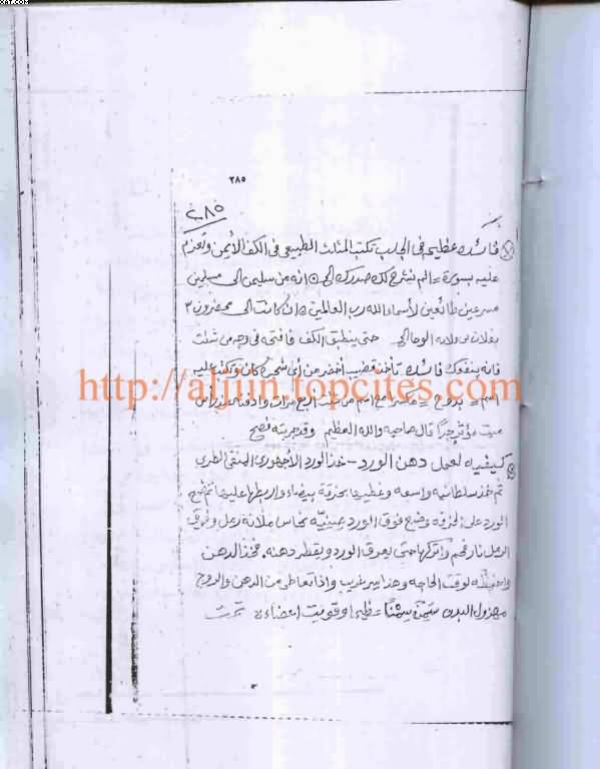 ٢٨٥
٢٨٥
فائدة عظيمة في الجلب تكتب المثلث الطبيعي في الكف الأيمن وتعزم
عليه بسورة = الم نشرح لك صدرك الى انه من سليمن الى مسلمين
مسرعين طائعين لأسماء الله رب العالمين ان كانت الى محضرون ٣
حتى ينطبق الكف فافتحه في وجه من شئت
فانه يتبعك فائدة تأخذ قضيب أخضر من أي شجر كان وتكتب عليه
http://aljiin.topcites.com
اسم = بدوح = مع اسم من شئت اربع مرات
ميت مؤثر جدا قال صاحبه والله العظيم وقد جربته فصح
كيفية لعمل دهن الورد - خذ الورد الأجهوري المنقى الطري
ثم خذ سلطانيه واسعه وغطيها بخرقة بيضاء واربطها عليها ثم ضع
الورد على الخرقه وضع فوق الورد صينية نحاس ملآنة رمل وفوق
الرمل نار فحم واتركها حتى يعرق الورد ويقطر دهنه فخذ الدهن
واحفظه لوقت الحاجه وهذا سر غريب واذا تعاطى من الدهن والروح
مهزول البدن سمن سمنا عظيما وقويت اعضاءه تمت